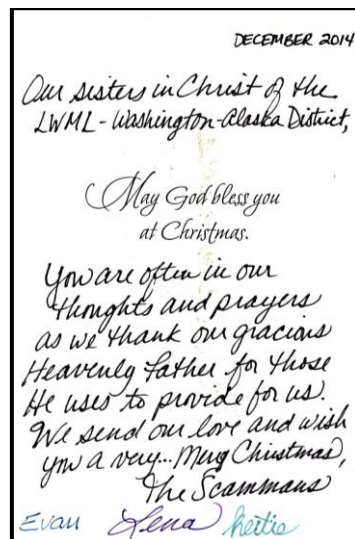 DECEMBER 2014
Our sisters in Christ of the
LWML - Washington-Alaska District,
May God bless you
at Christmas.
You are often in our
thoughts and prayers
as we thank our gracious
Heavenly Father for those
He uses to provide for us.
We send our love and wish
you a very... Merry Christmas,
The Scammans
Evan Lena